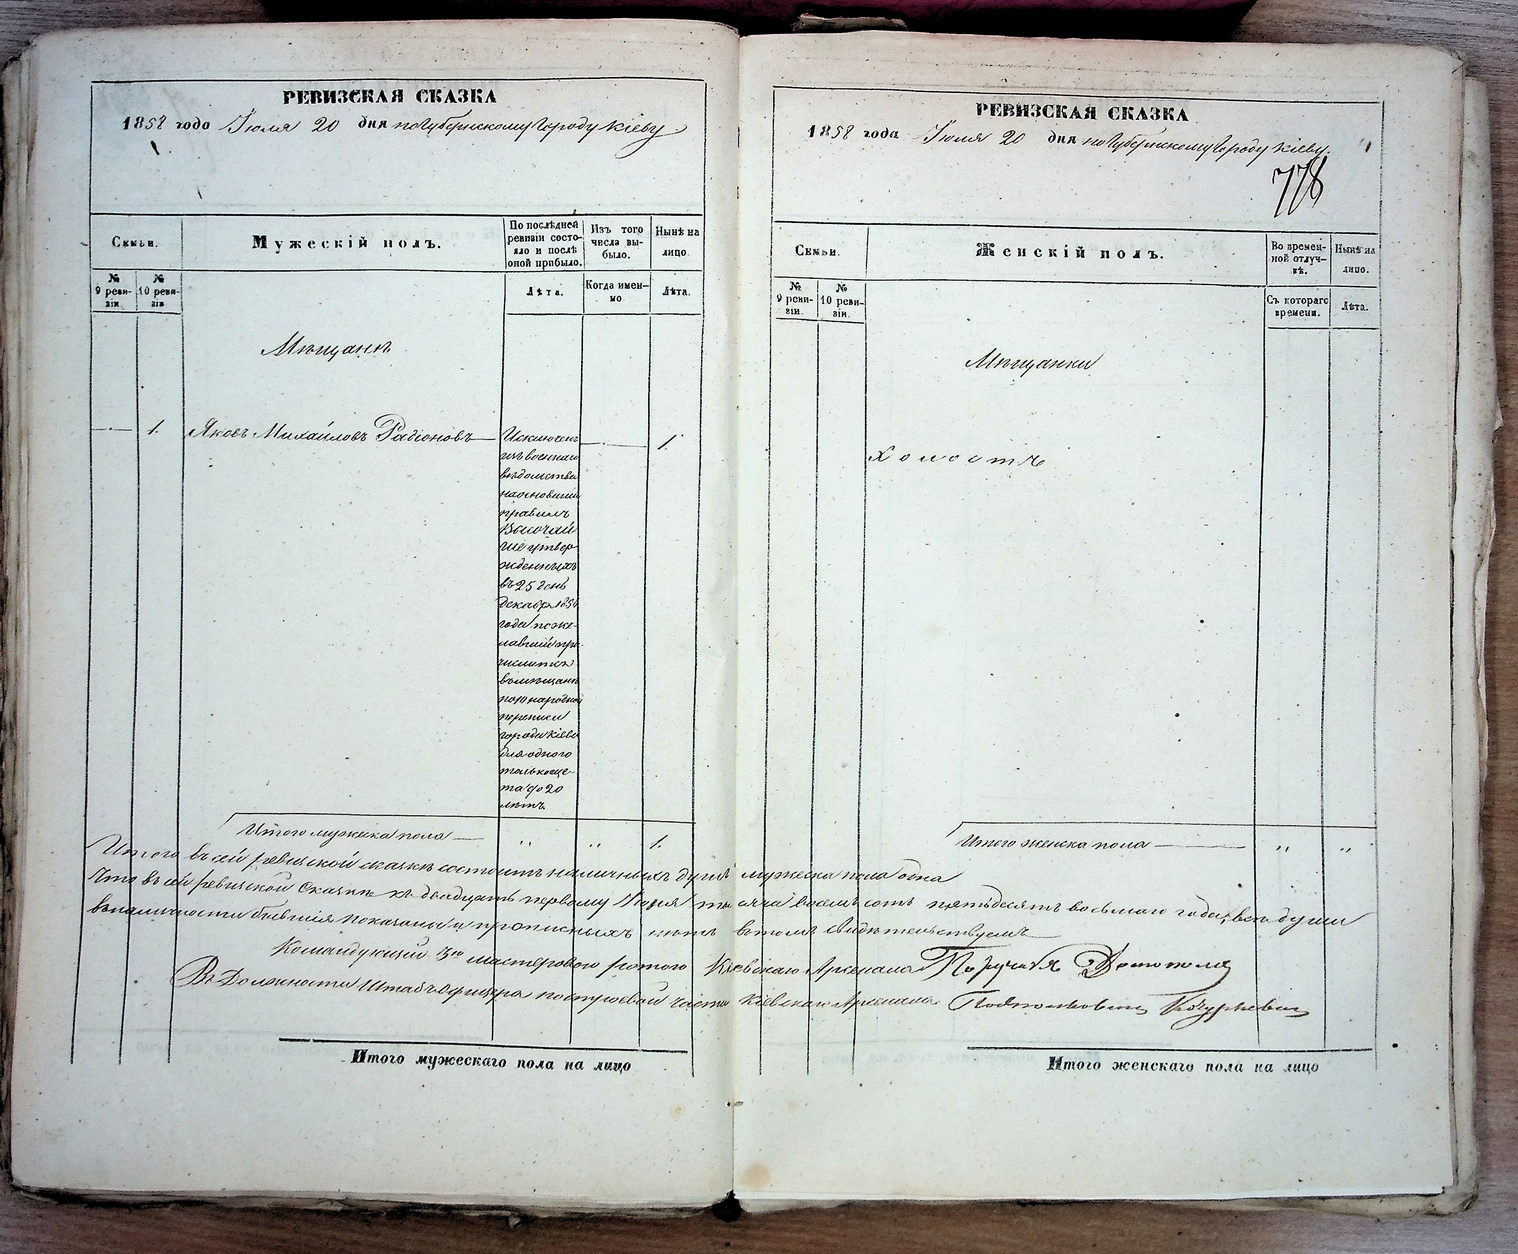 РЕВИЗСКАЯ СКАЗКА
1858 года Іюля 20 дня по Губернскому Городу Кіеву
Семьи.
Мужескій полъ.
По послѣдней ревизіи состояло и послѣ оной прибыло.
Изъ того числа выбыло.
Нынѣ на лицо.
№ 9 ревизіи.
№ 10 ревизіи
Лѣта.
Когда именно
Лѣта.
Мѣщанѣ
1. Яковъ Михайловъ Радіоновъ
1.
Исключенъ
изъ военнаго
вѣдомства
на основаніи
правилъ
Высочай
ше утвер
жденныхъ
въ 25 день
декабря 1856
года поже-
лавшій при
числится
въ мѣщанѣ
по 10 народной
переписи
города Кіева
для одного
только сче-
та до 20
лѣтъ
Итого мужеска пола „ „ 1.
РЕВИЗСКАЯ СКАЗКА
1858 года Іюля 20 дня по Губернскому Городу Кіеву.
778
Семьи.
Женскій полъ.
Во временной отлучкѣ.
Нынѣ на лицо.
№ 9 ревизіи.
№ 10 ревизіи.
Съ котораго времени.
Лѣта.
Мѣщанки
Холостъ
Итого женска пола „ „
Итого въ сей ревизской сказкѣ состоитъ наличныхъ душъ мужеска пола одна
Что въ сей ревизской сказкѣ къ двадцать первому Іюля тысяча восемьсотъ пятьдесятъ восьмаго года, всѣ души
въ наличности бывшія показаны и прописныхъ нѣтъ въ томъ свидѣтельствуемъ
Командующій мастеровою ротою Кіевскаго Арсенала Поручикъ
Въ Должности Штабъ Офицера по строевой части Кіевскаго Арсенала Подполковникъ
Итого мужескаго пола на лицо
Итого женскаго пола на лицо